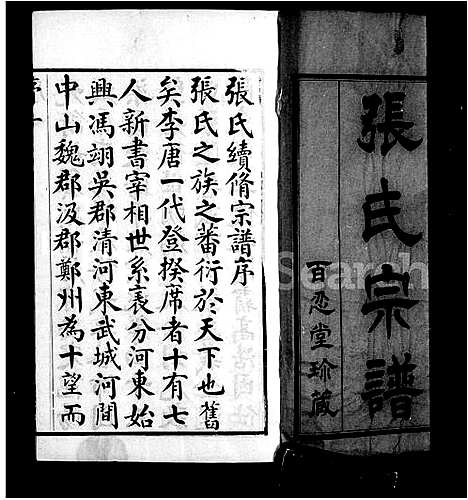 張氏宗譜
百忍堂珍藏
張氏續脩宗譜序
張氏之族之蕃衍於天下也舊
矣李唐一代登揆席者十有七
人新書宰相世系表分河東始
興馮翊吳郡清河東武城河間
中山魏郡汲郡鄭州為十望而
序一
Search